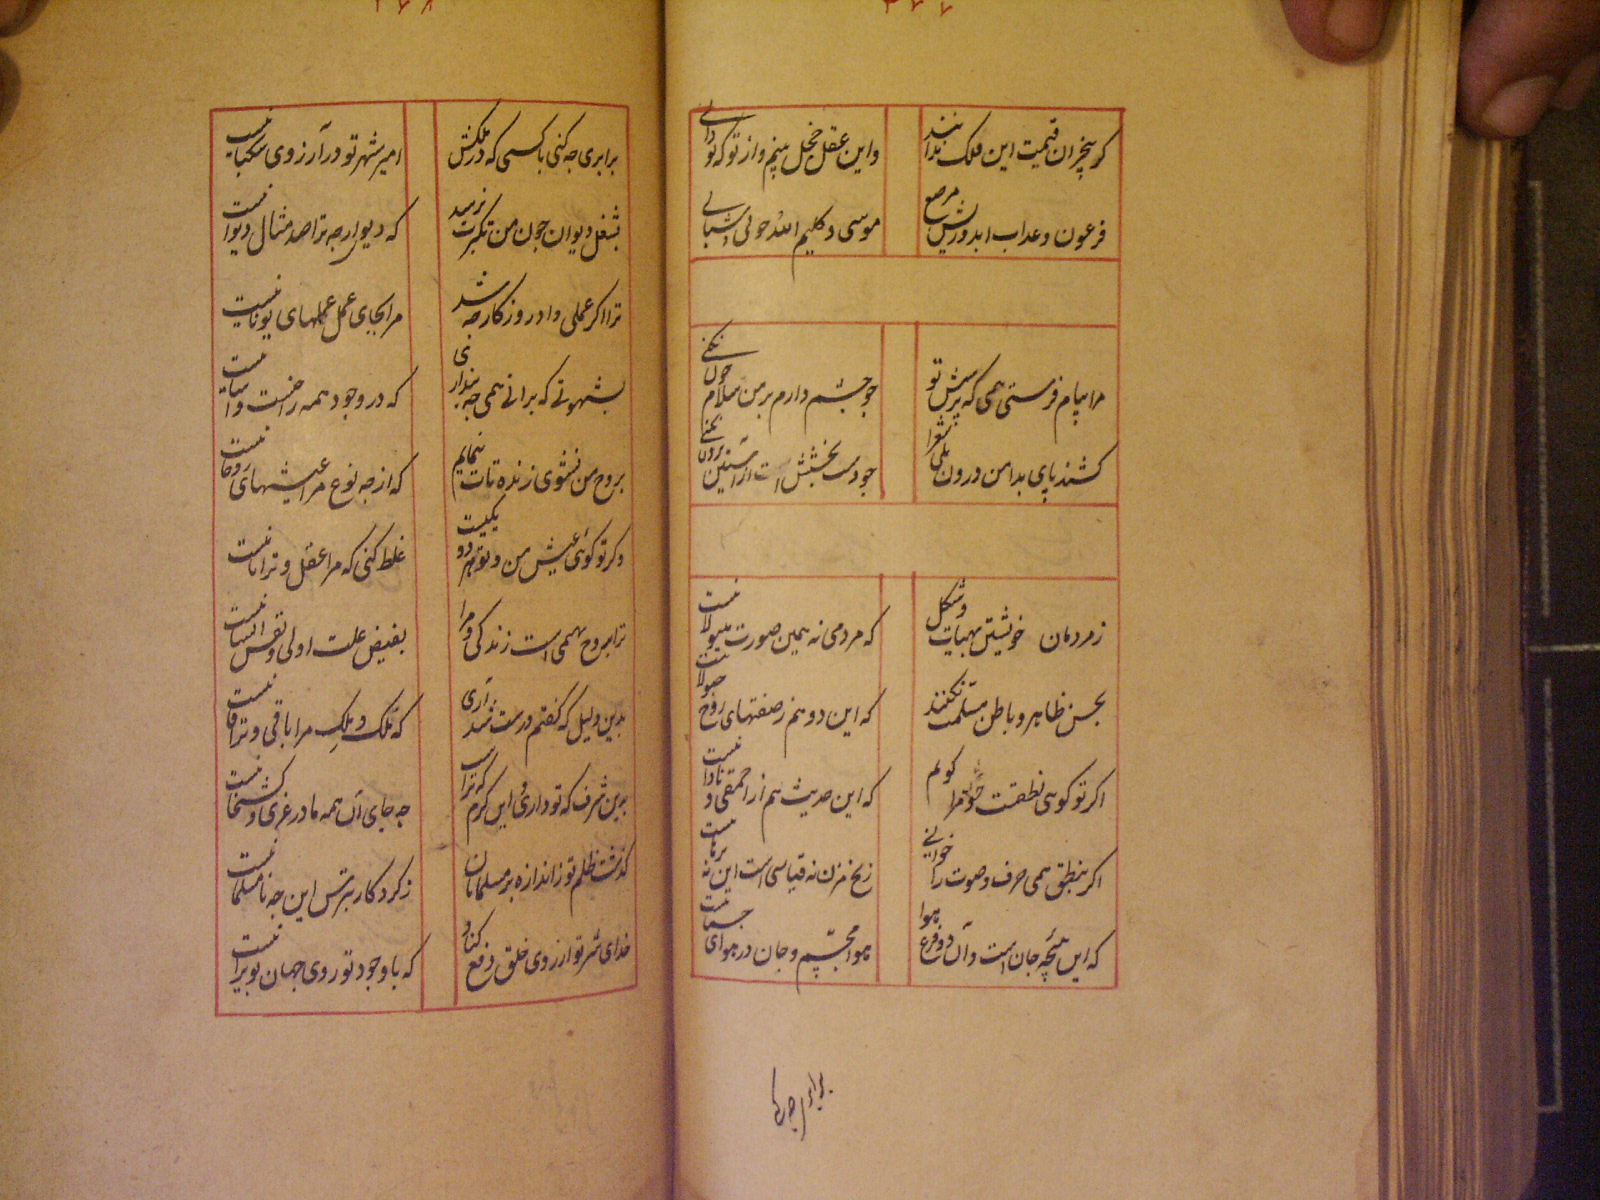 ۲۷۷
گر بیخبران قیمت این ملک ندانند
واین عقل خجل بینم و از تو که تو دانی
فرعون و عذاب ابد و ریش مرصع
موسی و کلیم الله و چوبی و شبانی
مرا پیام فرستی همی که پرسش تو
چو چشم دارم بر من سلام چون نکنی
کشند پای بدامن درون شعرا
چو دست بخشش از آستین برون نکنی
ز مردمان خویشتن بهیات و شکل
که مردمی نه همین صورت هیولانیست
بحسن ظاهر و باطن مسلمت نکنند
که این دو هم ز صفتهای روح
اگر تو گوئی نطقست مرا گویم
که این حدیث هم از احمقی و نادانیست
اگر بنطق همی حرف و صوت را خوانی
زنخ مزن نه قیاسی است این نه برهانیست
که این نتیجه جان است و آن دو فرع هوا
هوا مجسم و جان در هوای جسمانیست
۲۷۸
برابری چه کنی با کسی که در ملکش
امیر شهر تو در آرزوی سگبانیست
بشغل دیوان چون من تکبرت نرسد
که دیو ارچه ترا صد مثال دیوانیست
ترا اگر عملی داد روزگار چه شد
مرا بجای عمل عملهای یونانیست
بشهوتی که برانی همی چه پنداری
که در وجود همه راحت و
بروح من نشوی زنده تات ننمایم
که از چه نوع مرا عیشهای روحانیست
وگر تو گوئی عیش من و تو هر دو یکیست
غلط کنی که مرا عقل و ترا نیست
ترا بروح بهیمی است زندگی و مرا
بفیض علت اولی و نفس انسانیست
بدین دلیل که گفتم درست شد آری
که ملک و ملک مرا باقی و ترا فانیست
برین شرف که تو داری و این کرم که تراست
چه جای آن همه مادر غری و کشخانیست
گذشت ظلم تو ز اندازه بر مسلمانان
ز کردگار بترس این چه نامسلمانیست
خدای شر تو از روی خلق دفع کناد
که با وجود تو روی جهان بویرانیست